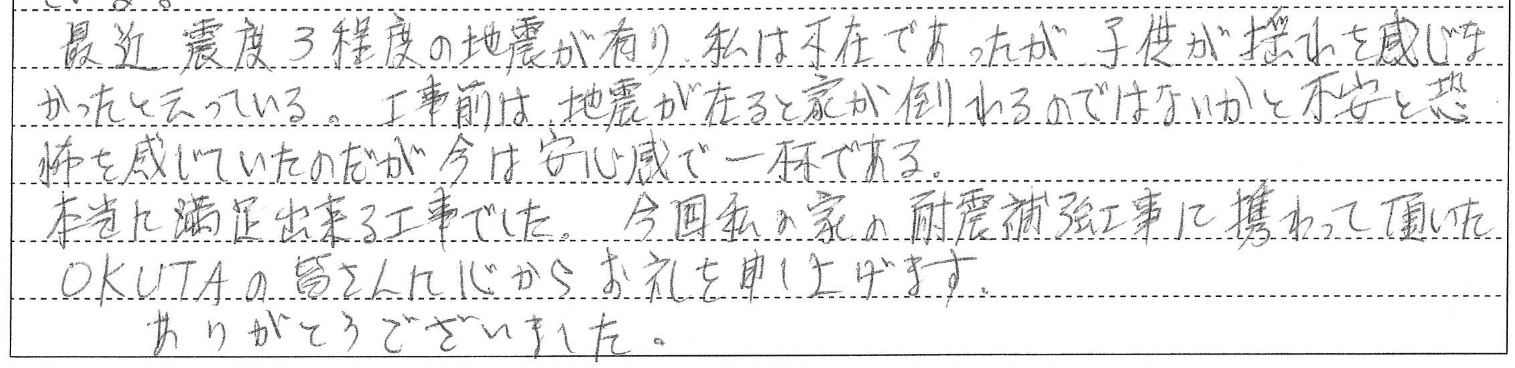 います。
最近 震度3程度の地震が有り、私は不在であったが 子供が揺れを感じな
かったと云っている。 工事前は、地震が在ると家が倒れるのではないかと不安と恐
怖を感じていたのだが今は安心感で一杯である。
本当に満足出来る工事でした。 今回私の家の耐震補強工事に携わって頂いた
OKUTAの皆さんに心からお礼を申し上げます。
ありがとうございました。